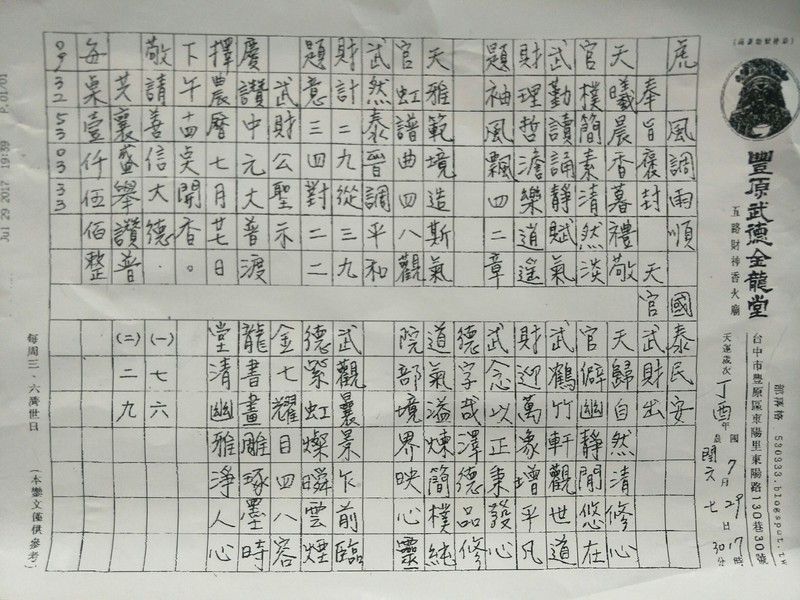 部落格 530333.blogspot.tw
豐原武德金龍堂
五路財神香火廟
台中市豐原區東陽里東陽路130巷30號
天運歲次丁酉年 國 7月29日17時
農 閏六 七 30分
虎 風調雨順 國泰民安
奉旨褒封 天官武財出
天曦晨香暮禮敬
官樸簡素清然淡
武勤讀誦靜賦氣
財理哲澹樂道遙
題袖風飄四二章
天雅範境造斯氣
官虹譜曲四八觀
武然泰晉調平和
財計二九從三九
題意三四對二二
武財公聖示
慶讚中元大普渡
擇農曆七月廿七日
下午十四點開香。
敬請善信大德.
共襄盛舉讚普。
每桌壹仟伍佰整
0932530333
天歸自然清修心
官僻幽靜閒悠在
武鶴竹軒觀世道
財迎萬象增平凡
武念以正秉發心
德字哉澤德品修
道氣溢煉簡樸純
院部境界映心靈
武觀襄景乍前臨
德縈虹燦瞬雲煙
金七耀目四八容
龍書畫雕琢墨時
堂清幽雅淨人心
(一)七六
(二)二九
每周三、六濟世日
(本鑾文僅供參考)
Jul 29 2017 19:39 P.01/01